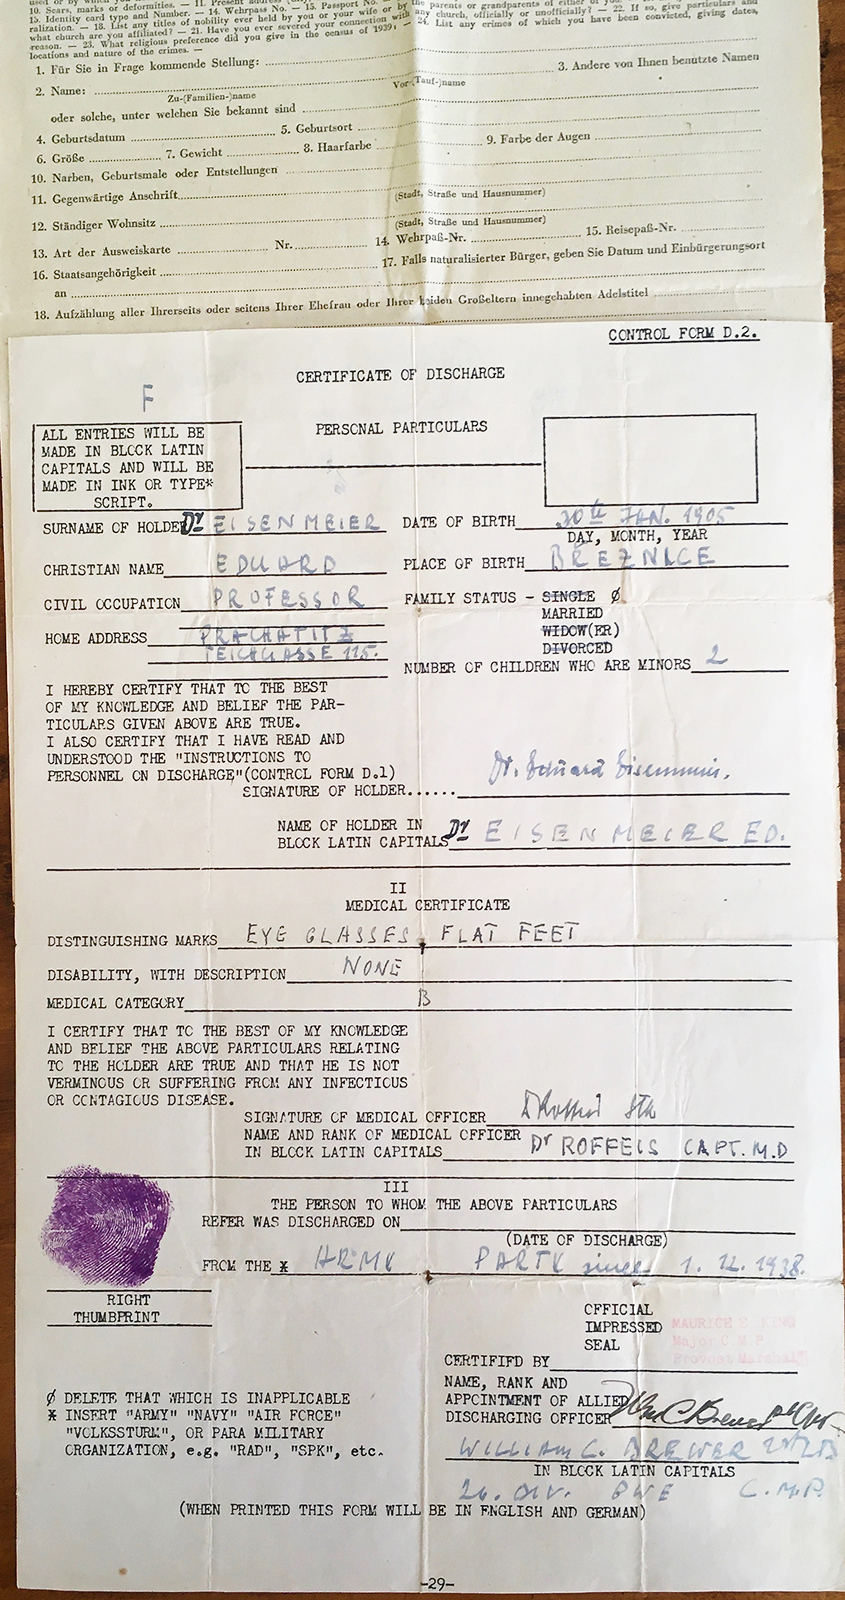 10. Sears, marks or deformities. — 11. Present address
15. Identity card type and Number. — 14. Wehrpass No. — 15. Passport No.
ralization. — 18. List any titles of nobility ever held by you or your wife or by the parents or grandparents of either of you.
what church are you affiliated? — 21. Have you ever severed your connection with any church, officially or unofficially? — 22. If so, give particulars and
reason. — 23. What religious preference did you give in the census of 1939? — 24. List any crimes of which you have been convicted, giving dates,
locations and nature of the crimes. —
1. Für Sie in Frage kommende Stellung:
2. Name: 3. Andere von Ihnen benutzte Namen
Zu-(Familien-)name Vor-(Tauf-)name
oder solche, unter welchen Sie bekannt sind
4. Geburtsdatum 5. Geburtsort
6. Größe 7. Gewicht 8. Haarfarbe 9. Farbe der Augen
10. Narben, Geburtsmale oder Entstellungen
11. Gegenwärtige Anschrift
(Stadt, Straße und Hausnummer)
12. Ständiger Wohnsitz
(Stadt, Straße und Hausnummer)
13. Art der Ausweiskarte Nr. 14. Wehrpaß-Nr. 15. Reisepaß-Nr.
16. Staatsangehörigkeit 17. Falls naturalisierter Bürger, geben Sie Datum und Einbürgerungsort
an
18. Aufzählung aller Ihrerseits oder seitens Ihrer Ehefrau oder Ihrer beiden Großeltern innegehabten Adelstitel
CONTROL FORM D.2.
CERTIFICATE OF DISCHARGE
F
PERSONAL PARTICULARS
ALL ENTRIES WILL BE
MADE IN BLOCK LATIN
CAPITALS AND WILL BE
MADE IN INK OR TYPE*
SCRIPT.
SURNAME OF HOLDER Dr EISENMEIER DATE OF BIRTH 30th JAN. 1905
DAY, MONTH, YEAR
CHRISTIAN NAME EDUARD PLACE OF BIRTH BREZNICE
CIVIL OCCUPATION PROFESSOR FAMILY STATUS - SINGLE ø
MARRIED
HOME ADDRESS PRACHATITZ WIDOW(ER)
TEICHGASSE 115. DIVORCED
NUMBER OF CHILDREN WHO ARE MINORS 2
I HEREBY CERTIFY THAT TO THE BEST
OF MY KNOWLEDGE AND BELIEF THE PAR-
TICULARS GIVEN ABOVE ARE TRUE.
I ALSO CERTIFY THAT I HAVE READ AND
UNDERSTOOD THE "INSTRUCTIONS TO
PERSONNEL ON DISCHARGE"(CONTROL FORM D.1)
SIGNATURE OF HOLDER...... Dr. Eduard Eisenmeier.
NAME OF HOLDER IN
BLOCK LATIN CAPITALS Dr EISENMEIER ED.
II
MEDICAL CERTIFICATE
DISTINGUISHING MARKS EYE GLASSES, FLAT FEET
DISABILITY, WITH DESCRIPTION NONE
MEDICAL CATEGORY B
I CERTIFY THAT TO THE BEST OF MY KNOWLEDGE
AND BELIEF THE ABOVE PARTICULARS RELATING
TO THE HOLDER ARE TRUE AND THAT HE IS NOT
VERMINOUS OR SUFFERING FROM ANY INFECTIOUS
OR CONTAGIOUS DISEASE.
SIGNATURE OF MEDICAL OFFICER
NAME AND RANK OF MEDICAL OFFICER
IN BLOCK LATIN CAPITALS Dr ROFFEIS CAPT. M.D
III
THE PERSON TO WHOM THE ABOVE PARTICULARS
REFER WAS DISCHARGED ON
(DATE OF DISCHARGE)
FROM THE * ARMY PARTY since 1. 12. 1938.
RIGHT
THUMBPRINT
OFFICIAL
IMPRESSED
SEAL
MAURICE E. KING
Major C.M.P.
Provost Marshall
CERTIFIED BY
NAME, RANK AND
APPOINTMENT OF ALLIED
DISCHARGING OFFICER
WILLIAM C. BREWER
IN BLOCK LATIN CAPITALS
26. DIV. PWE C.M.P.
ø DELETE THAT WHICH IS INAPPLICABLE
* INSERT "ARMY" "NAVY" "AIR FORCE"
"VOLKSSTURM", OR PARA MILITARY
ORGANIZATION, e.g. "RAD", "SPK", etc.
(WHEN PRINTED THIS FORM WILL BE IN ENGLISH AND GERMAN)
-29-